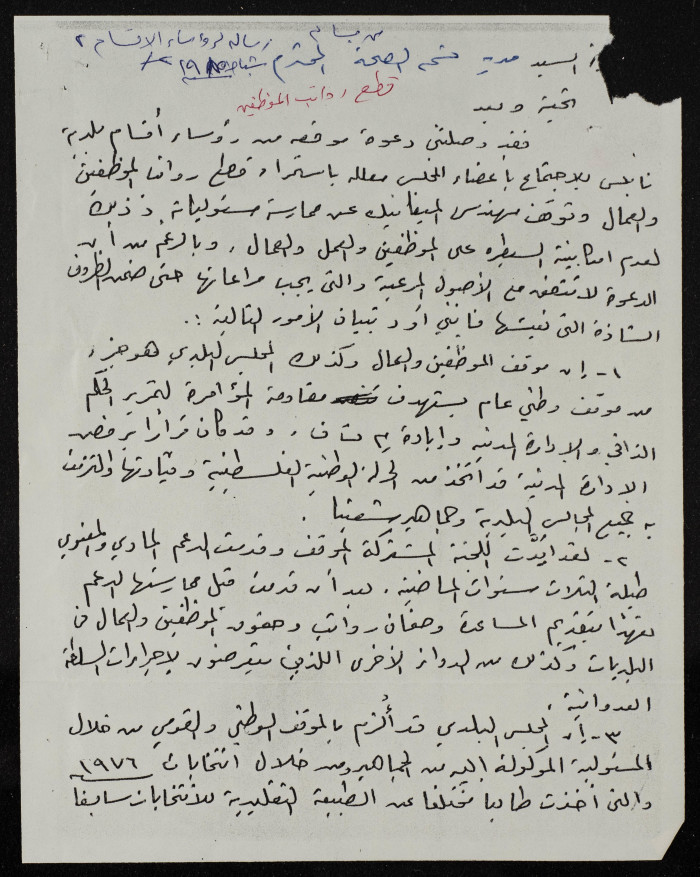 من بسام
رسالة لرؤساء الاقسام
السيد مدير قسم الصحة المحترم شباط
قطع رواتب الموظفين
تحية وبعد
فقد وصلتني دعوة موقعه من رؤساء أقسام بلدية
نابلس للاجتماع باعضاء المجلس معلله باستمرار قطع رواتب الموظفين
والعمال وتوقف مهندس الميكانيك عن ممارسة مسئولياته وذلك
لعدم امكانية السيطره على الموظفين والعمل والعمال . وبالرغم من أن
الدعوة لا تتفق مع الأصول المرعية والتي يجب مراعاتها حتى ضمن الظروف
الشاذة التي نعيشها فانني أود تبيان الأمور التالية :.
١- إن موقف الموظفين والعمال وكذلك المجلس البلدي هو جزء
من موقف وطني عام يستهدف مقاومة المؤامرة لتمرير الحكم
الذاتي والادارة المدنيه وإبادة م ت ف . وقد كان قرارا برفض
الادارة المدنية قد اتخذ من الحركة الوطنية الفلسطينية وقيادتها والتزمت
به جميع المجالس البلدية وجماهير شعبنا .
٢- لقد أيدت اللجنة المشتركة الموقف وقدمت الدعم المادي والمعنوي
طيلة الثلاث سنوات الماضيه . بعد أن قدمت قبل ممارستها الدعم
تعهدا بتقديم المساعدة وضمان رواتب وحقوق الموظفين والعمال في
البلديات وكذلك من الدوائر الأخرى اللذين يتعرضون لإجراءات السلطة
العدوانية .
٣- إن المجلس البلدي قد ألزم بالموقف الوطني والقومي من خلال
المسئولية الموكولة اليه من الجماهير ومن خلال انتخابات ١٩٧٦
والتي أخذت طابعا مختلفا عن الطبيعة التقليدية للأنتخابات سابقا